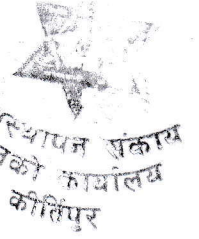 स्थापन संकाय
को कार्यालय
कीर्तिपुर